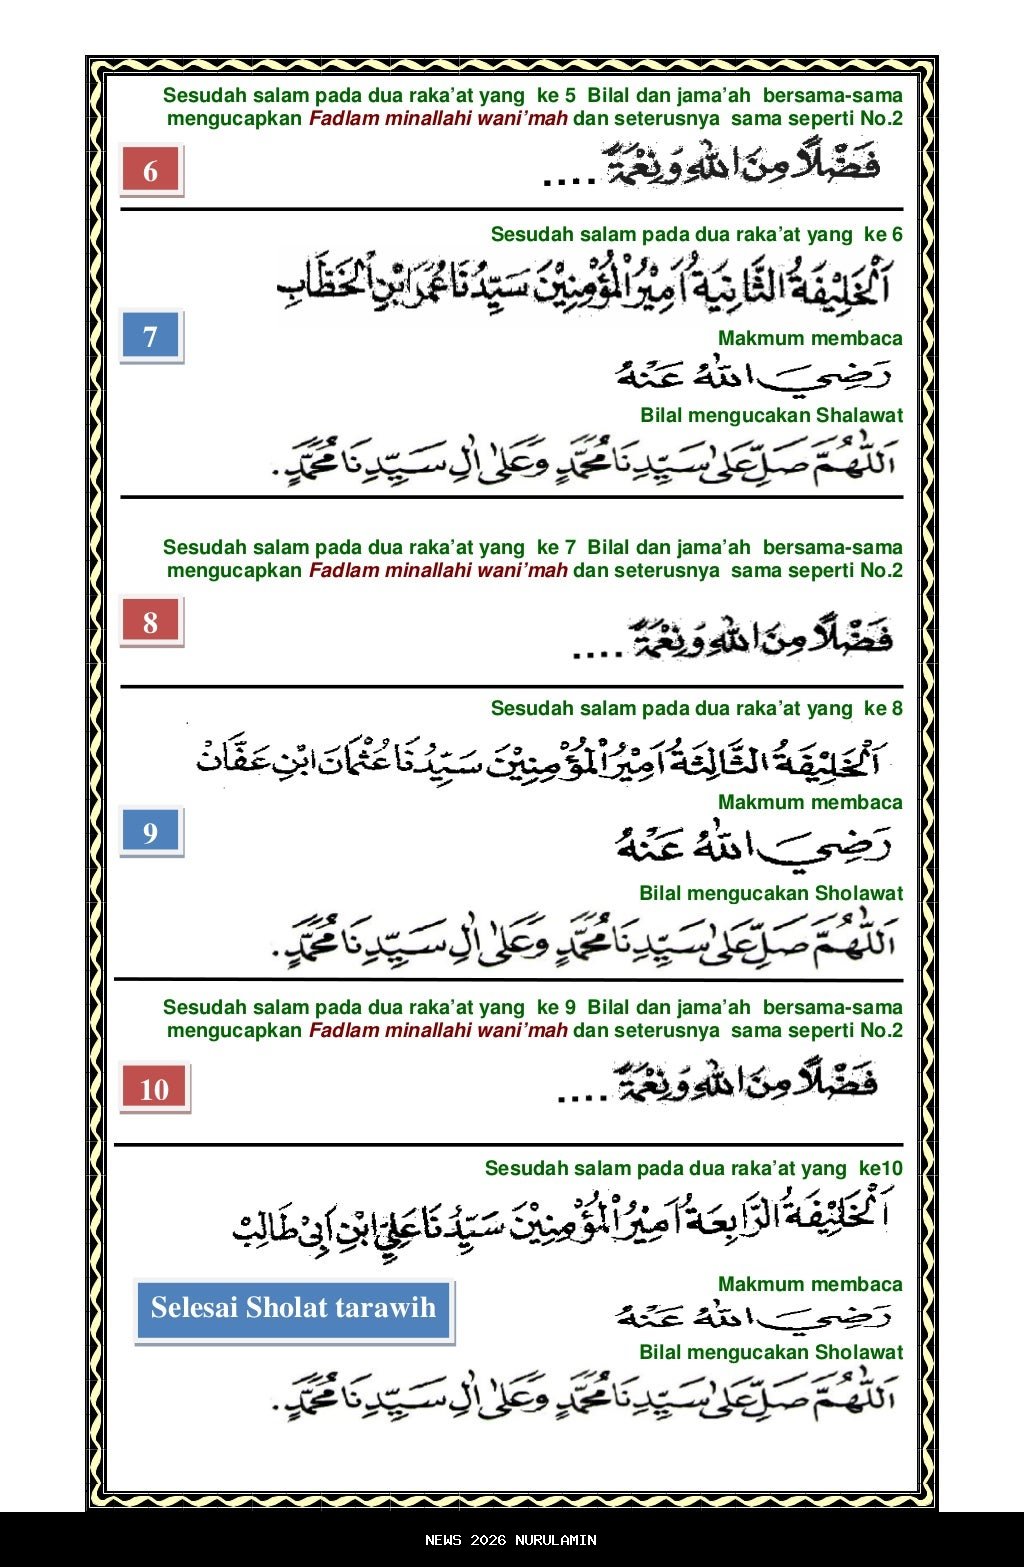 Sesudah salam pada dua raka’at yang ke 5 Bilal dan jama’ah bersama-sama
mengucapkan Fadlam minallahi wani’mah dan seterusnya sama seperti No.2
6
فَضْلًا مِنَ اللهِ وَنِعْمَةً ....
Sesudah salam pada dua raka’at yang ke 6
اَلْخَلِيْفَةُ الثَّانِيَةُ اَمِيْرُ الْمُؤْمِنِيْنَ سَيِّدُنَا عُمَرَ ابْنِ الْخَطَّابِ
7
Makmum membaca
رَضِيَ اللهُ عَنْهُ
Bilal mengucakan Shalawat
اَللّٰهُمَّ صَلِّ عَلٰى سَيِّدِنَا مُحَمَّدٍ وَعَلٰى اٰلِ سَيِّدِنَا مُحَمَّدٍ.
Sesudah salam pada dua raka’at yang ke 7 Bilal dan jama’ah bersama-sama
mengucapkan Fadlam minallahi wani’mah dan seterusnya sama seperti No.2
8
فَضْلًا مِنَ اللهِ وَنِعْمَةً ....
Sesudah salam pada dua raka’at yang ke 8
اَلْخَلِيْفَةُ الثَّالِثَةُ اَمِيْرُ الْمُؤْمِنِيْنَ سَيِّدُنَا عُثْمَانَ ابْنِ عَفَّانْ
Makmum membaca
9
رَضِيَ اللهُ عَنْهُ
Bilal mengucakan Sholawat
اَللّٰهُمَّ صَلِّ عَلٰى سَيِّدِنَا مُحَمَّدٍ وَعَلٰى اٰلِ سَيِّدِنَا مُحَمَّدٍ.
Sesudah salam pada dua raka’at yang ke 9 Bilal dan jama’ah bersama-sama
mengucapkan Fadlam minallahi wani’mah dan seterusnya sama seperti No.2
10
فَضْلًا مِنَ اللهِ وَنِعْمَةً ....
Sesudah salam pada dua raka’at yang ke10
اَلْخَلِيْفَةُ الرَّابِعَةُ اَمِيْرُ الْمُؤْمِنِيْنَ سَيِّدُنَا عَلِيِّ ابْنِ اَبِيْ طَالِبْ
Makmum membaca
Selesai Sholat tarawih
رَضِيَ اللهُ عَنْهُ
Bilal mengucakan Sholawat
اَللّٰهُمَّ صَلِّ عَلٰى سَيِّدِنَا مُحَمَّدٍ وَعَلٰى اٰلِ سَيِّدِنَا مُحَمَّدٍ.
NEWS 2026 NURULAMIN